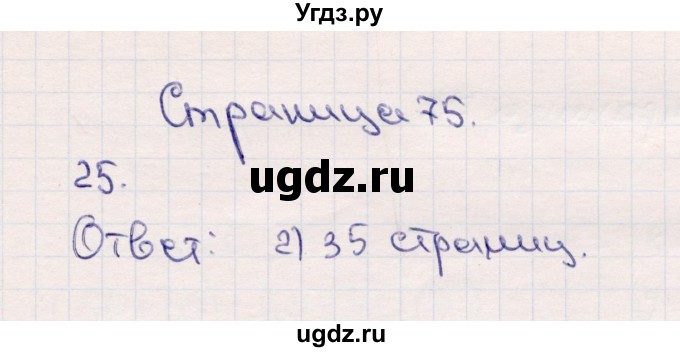 Угдз.ру
Страница 75.
25.
ugdz.ru
Ответ: 2) 35 страниц.
ugdz.ru